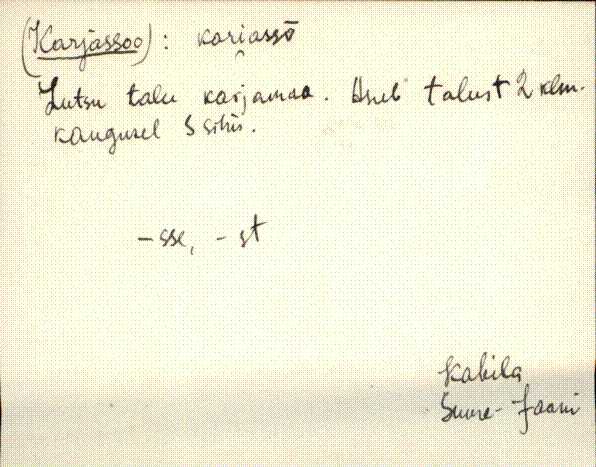 (Karjassoo): kari̯assō
Lutsu talu karjamaa. Asub talust 2 klm.
kaugusel S sihis.
-sse, -st
Kabila
Suure-Jaani